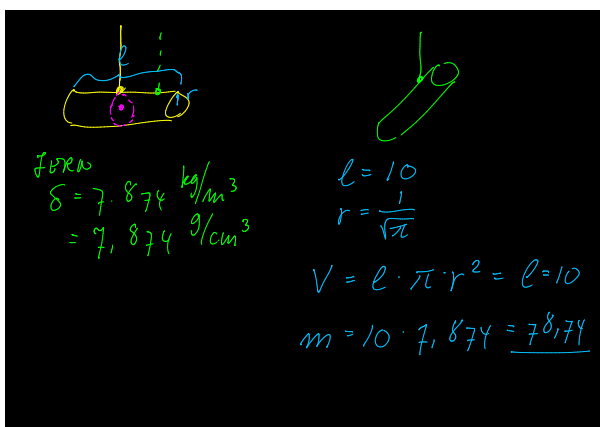 l
r
JERN
δ = 7.874 kg/m³
= 7,874 g/cm³
l = 10
r = 1/√π
V = l · π · r² = l = 10
m = 10 · 7,874 = 78,74